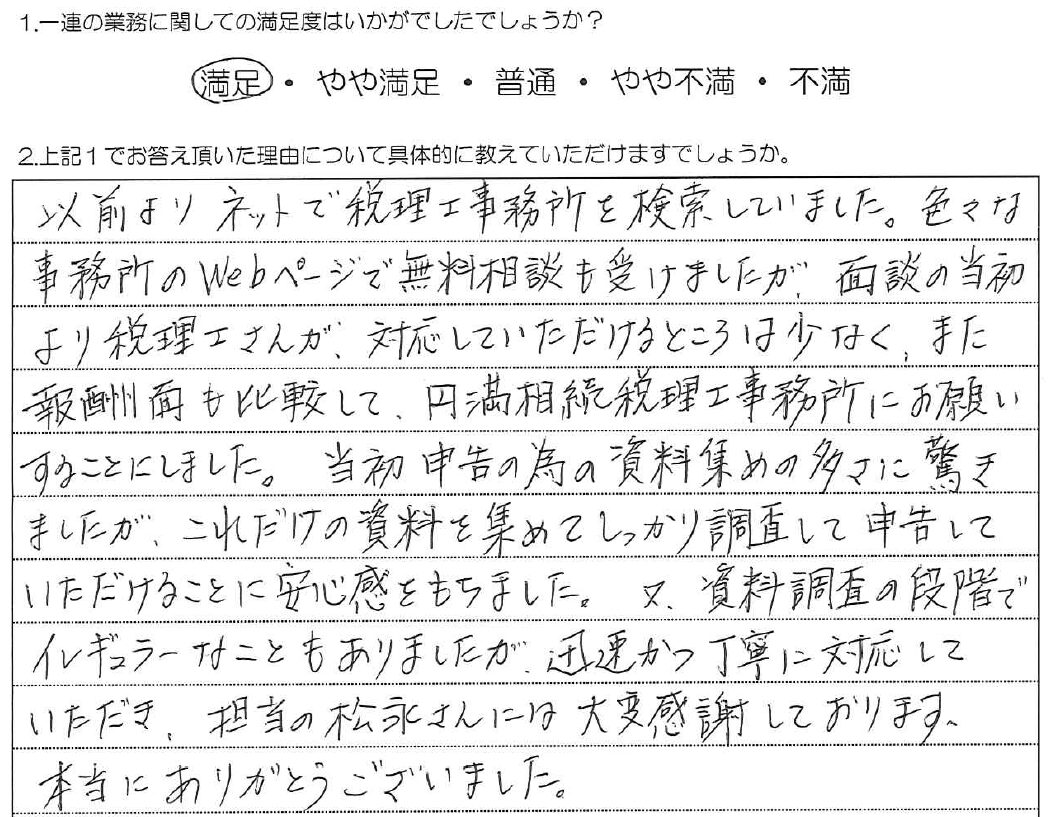 1.一連の業務に関しての満足度はいかがでしたでしょうか？
満足・やや満足・普通・やや不満・不満
2.上記１でお答え頂いた理由について具体的に教えていただけますでしょうか。
以前よりネットで税理士事務所を検索していました。色々な
事務所のWebページで無料相談も受けましたが、面談の当初
より税理士さんが、対応していただけるところは少なく、また
報酬面も比較して、円満相続税理士事務所にお願い
することにしました。当初申告の為の資料集めの多さに驚き
ましたが、これだけの資料を集めてしっかり調査して申告して
いただけることに安心感をもちました。又、資料調査の段階で
イレギュラーなこともありましたが、迅速かつ丁寧に対応して
いただき、担当の松永さんには大変感謝しております。
本当にありがとうございました。